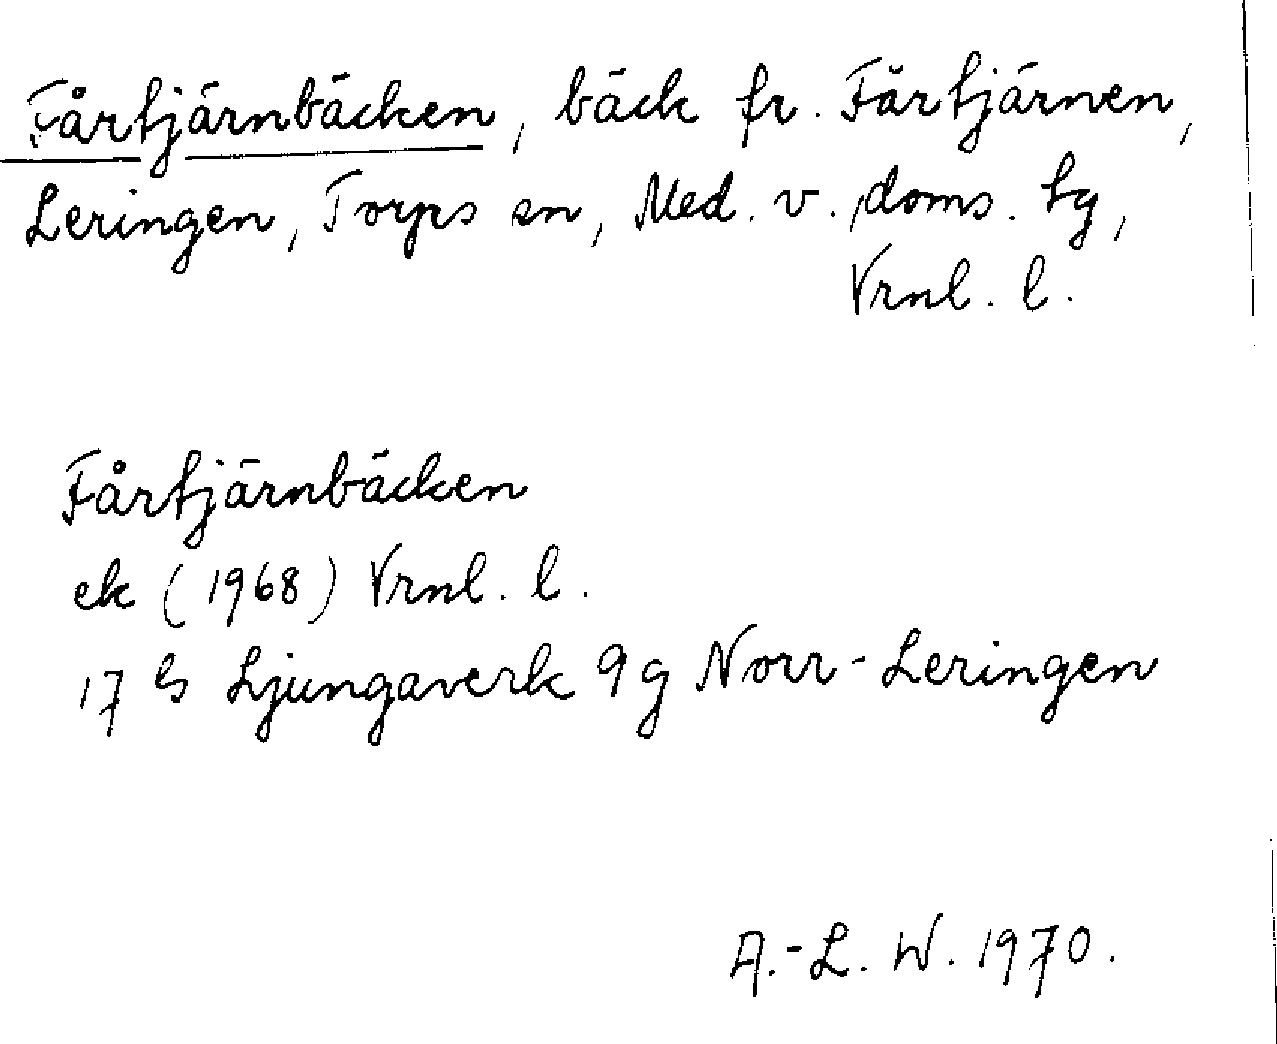 Fårtjärnbäcken, bäck fr. Fårtjärnen,
Leringen, Torps sn, Med. v. doms. tg,
Vrnl. l.
Fårtjärnbäcken
ek (1968) Vrnl. l.
17 G Ljungaverk 9g Norr-Leringen
A.-L. W. 1970.